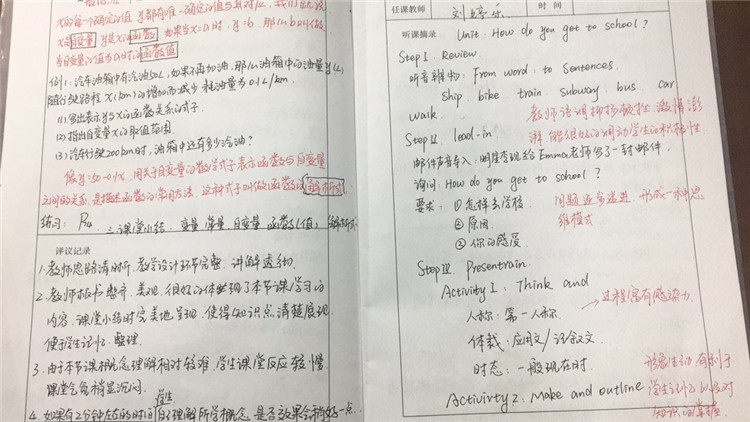 x的每一个确定的值,y都有唯一确定的值与其对应,我们就说
x是自变量,y是x的函数.如果当x=a时,y=b,那么b叫做
当自变量的值为a时的函数值
例1:汽车油箱中有汽油50L,如果不再加油,那么油箱中的油量y(L)
随行驶路程x(km)的增加而减少,耗油量为0.1L/km.
(1)写出表示y与x的函数关系的式子.
(2)指出自变量x的取值范围
(3)汽车行驶200km时,油箱中还有多少汽油?
像y=50-0.1x,用关于自变量的数学式子表示函数与自变量
之间的关系,是描述函数的常用方法,这种式子叫做函数的解析式.
练习: P74 三.课堂小结:变量 常量 自变量 函数(值) 解析式
评议记录
1.教师思路清晰,教学设计环节完整,讲解透彻.
2.教师板书整齐、美观,很好的体现了本节课学习的
内容,课堂小结时完美地呈现,使得知识点清楚展现,
便于学生记忆、整理.
3.由于本节课概念理解相对较难,学生课堂反应较慢,
课堂气氛稍显沉闷.
4.如果有2分钟左右的时间学生自己理解所学概念,是否效果会稍好一点.
任课教师 刘婷乐 时间
听课摘录 Unit: How do you get to school?
Step I. Review.
听音辨物: From word to sentences.
ship bike train subway bus car
walk.
教师语调抑扬顿挫 激情澎
湃,能很好的调动学生的积极性
Step II lead-in
邮件声音导入:明星李现给Emma老师写了一封邮件.
询问: How do you get to school?
要求: ①怎样去学校.
②原因
③你的感受.
问题逐步递进 形成一种思
维模式
Step III. Presentrain.
Activity 1: Think and
人称: 第一人称.
→过程富有感染力
体裁: 应用文/记叙文
时态: 一般现在时.
Activirty 2: Make and outline
形象生动 有利于
学生记忆以及对
知识的掌握